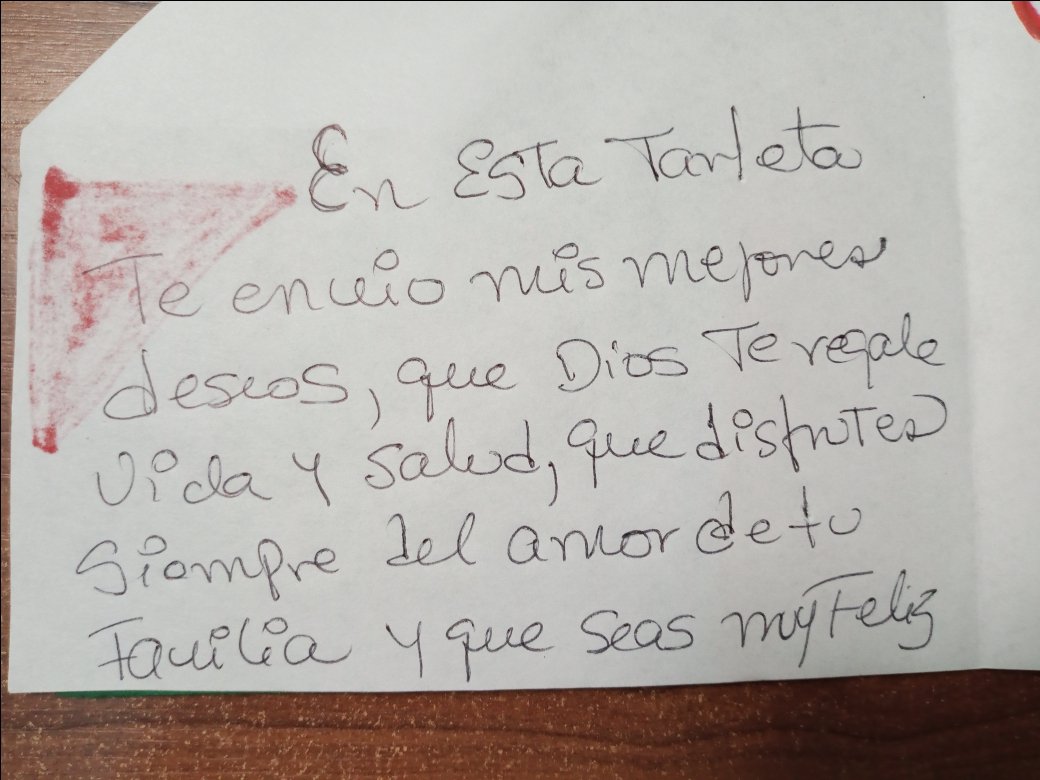 En Esta Tarjeta
Te envio mis mejores
deseos, que Dios Te regale
Vida y salud, que disfrutes
Siempre del amor de tu
Familia y que seas muy Feliz